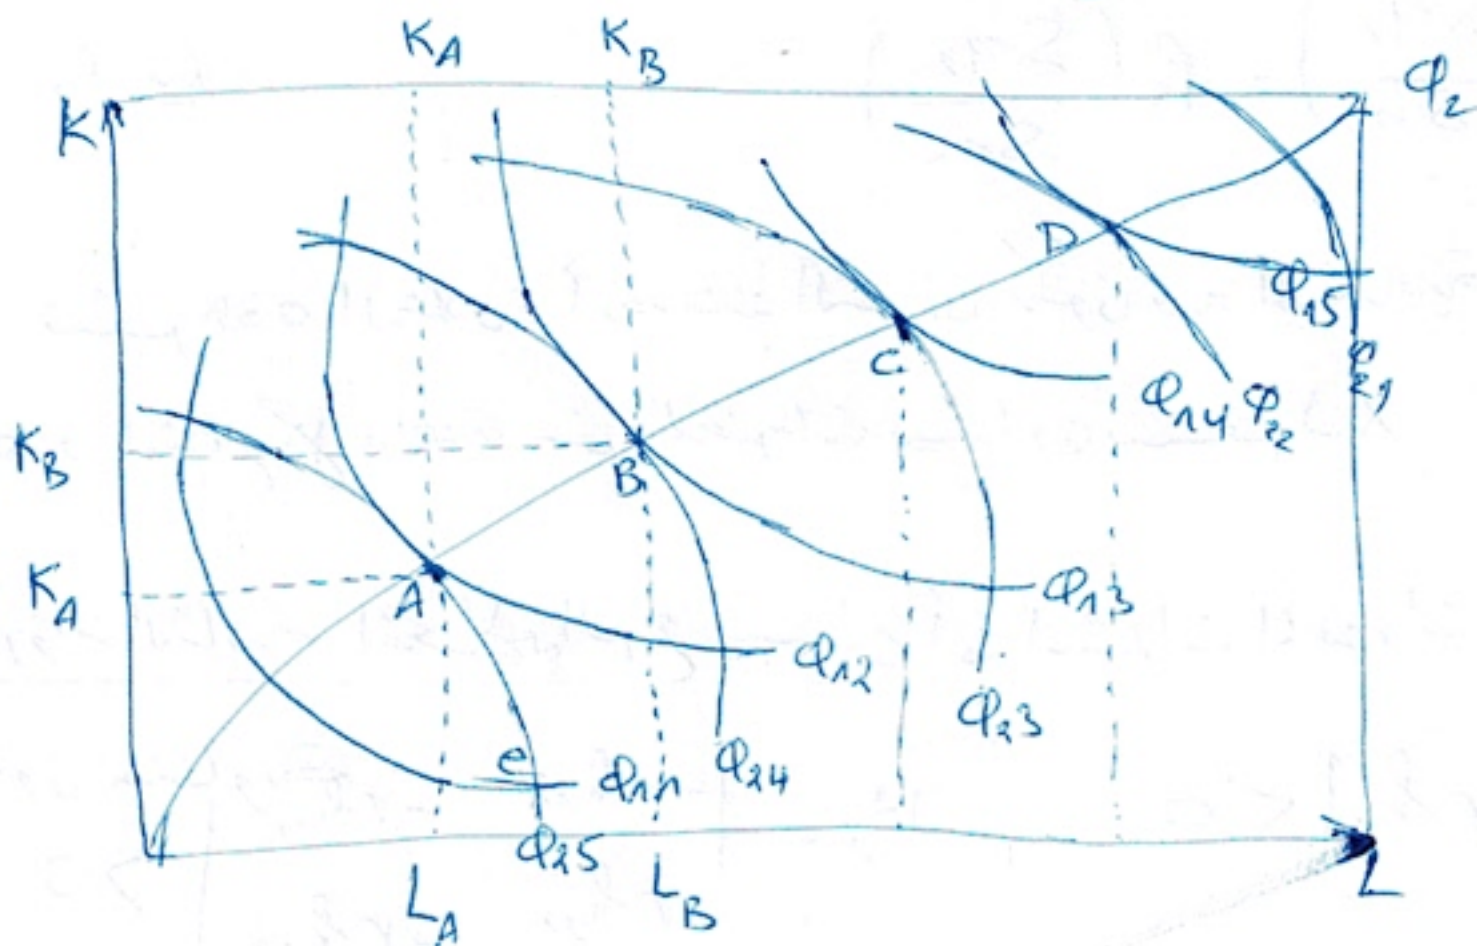 K_A K_B
Q_2
K
D
Q_15
C
Q_14 Q_22
Q_21
K_B
B
K_A
A
Q_13
Q_12
Q_23
e Q_11 Q_24
Q_25
L_A L_B
L